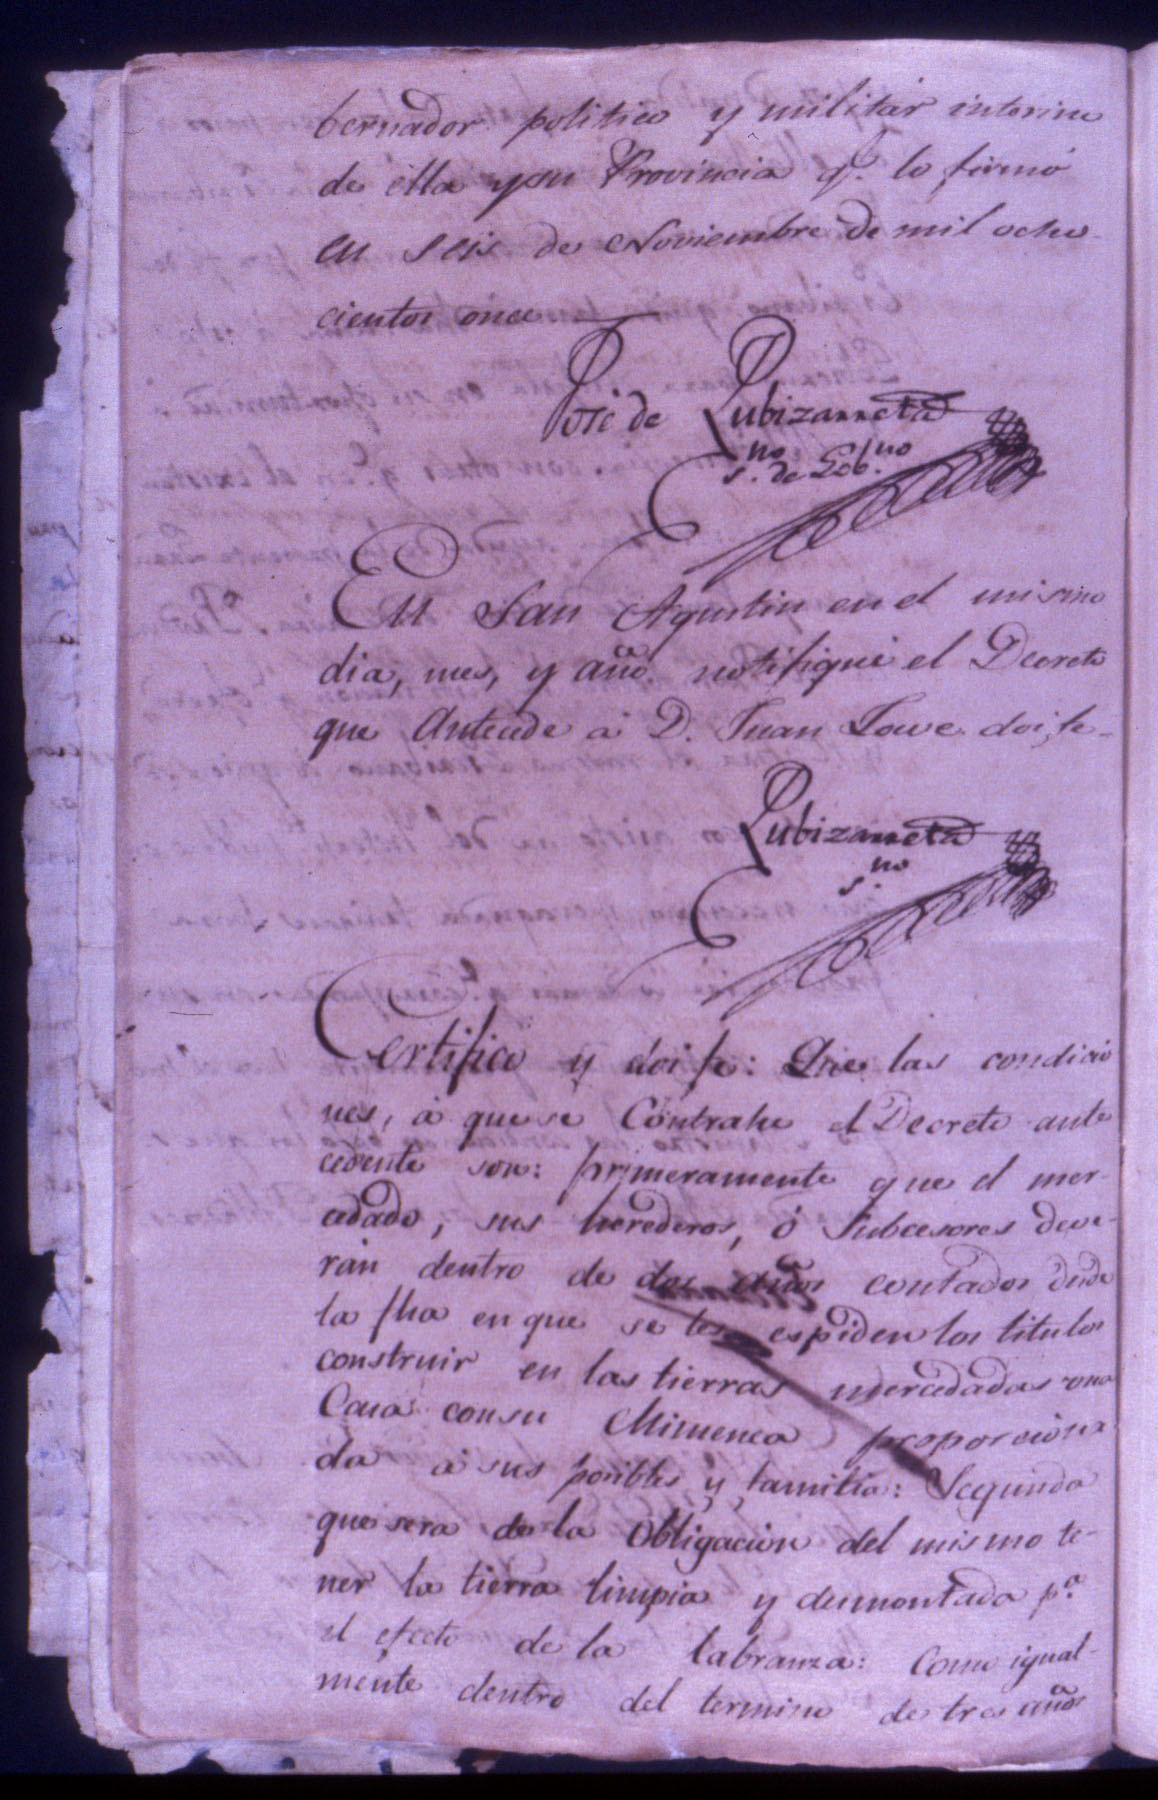 bernador politico y militar interino
de ella y su Provincia q.e lo firmó
en seis de Noviembre de mil ocho-
cientos once.
José de Zubizarreta
s.no de Gob.no
En San Agustin en el mismo
dia, mes, y año notifiqué el Decreto
que Antecede á D. Juan Lowe doi fe-
Zubizarreta
s.no
Certifico y doi fe: Que las condicio
nes, á que se Contrahe el Decreto ante
cedente son: primeramente que el mer-
cedado, sus herederos, ó Subcesores deve-
rán dentro de dos años contados desde
la fha en que se les espiden los titulos
construir en las tierras mercedadas una
Casa con su Chimenea proporciona
da á sus posibles y familia: Segunda
que sera de la Obligacion del mismo te-
ner la tierra limpia y desmontada p.a
el efecto de la labranza: como igual-
mente dentro del termino de tres años